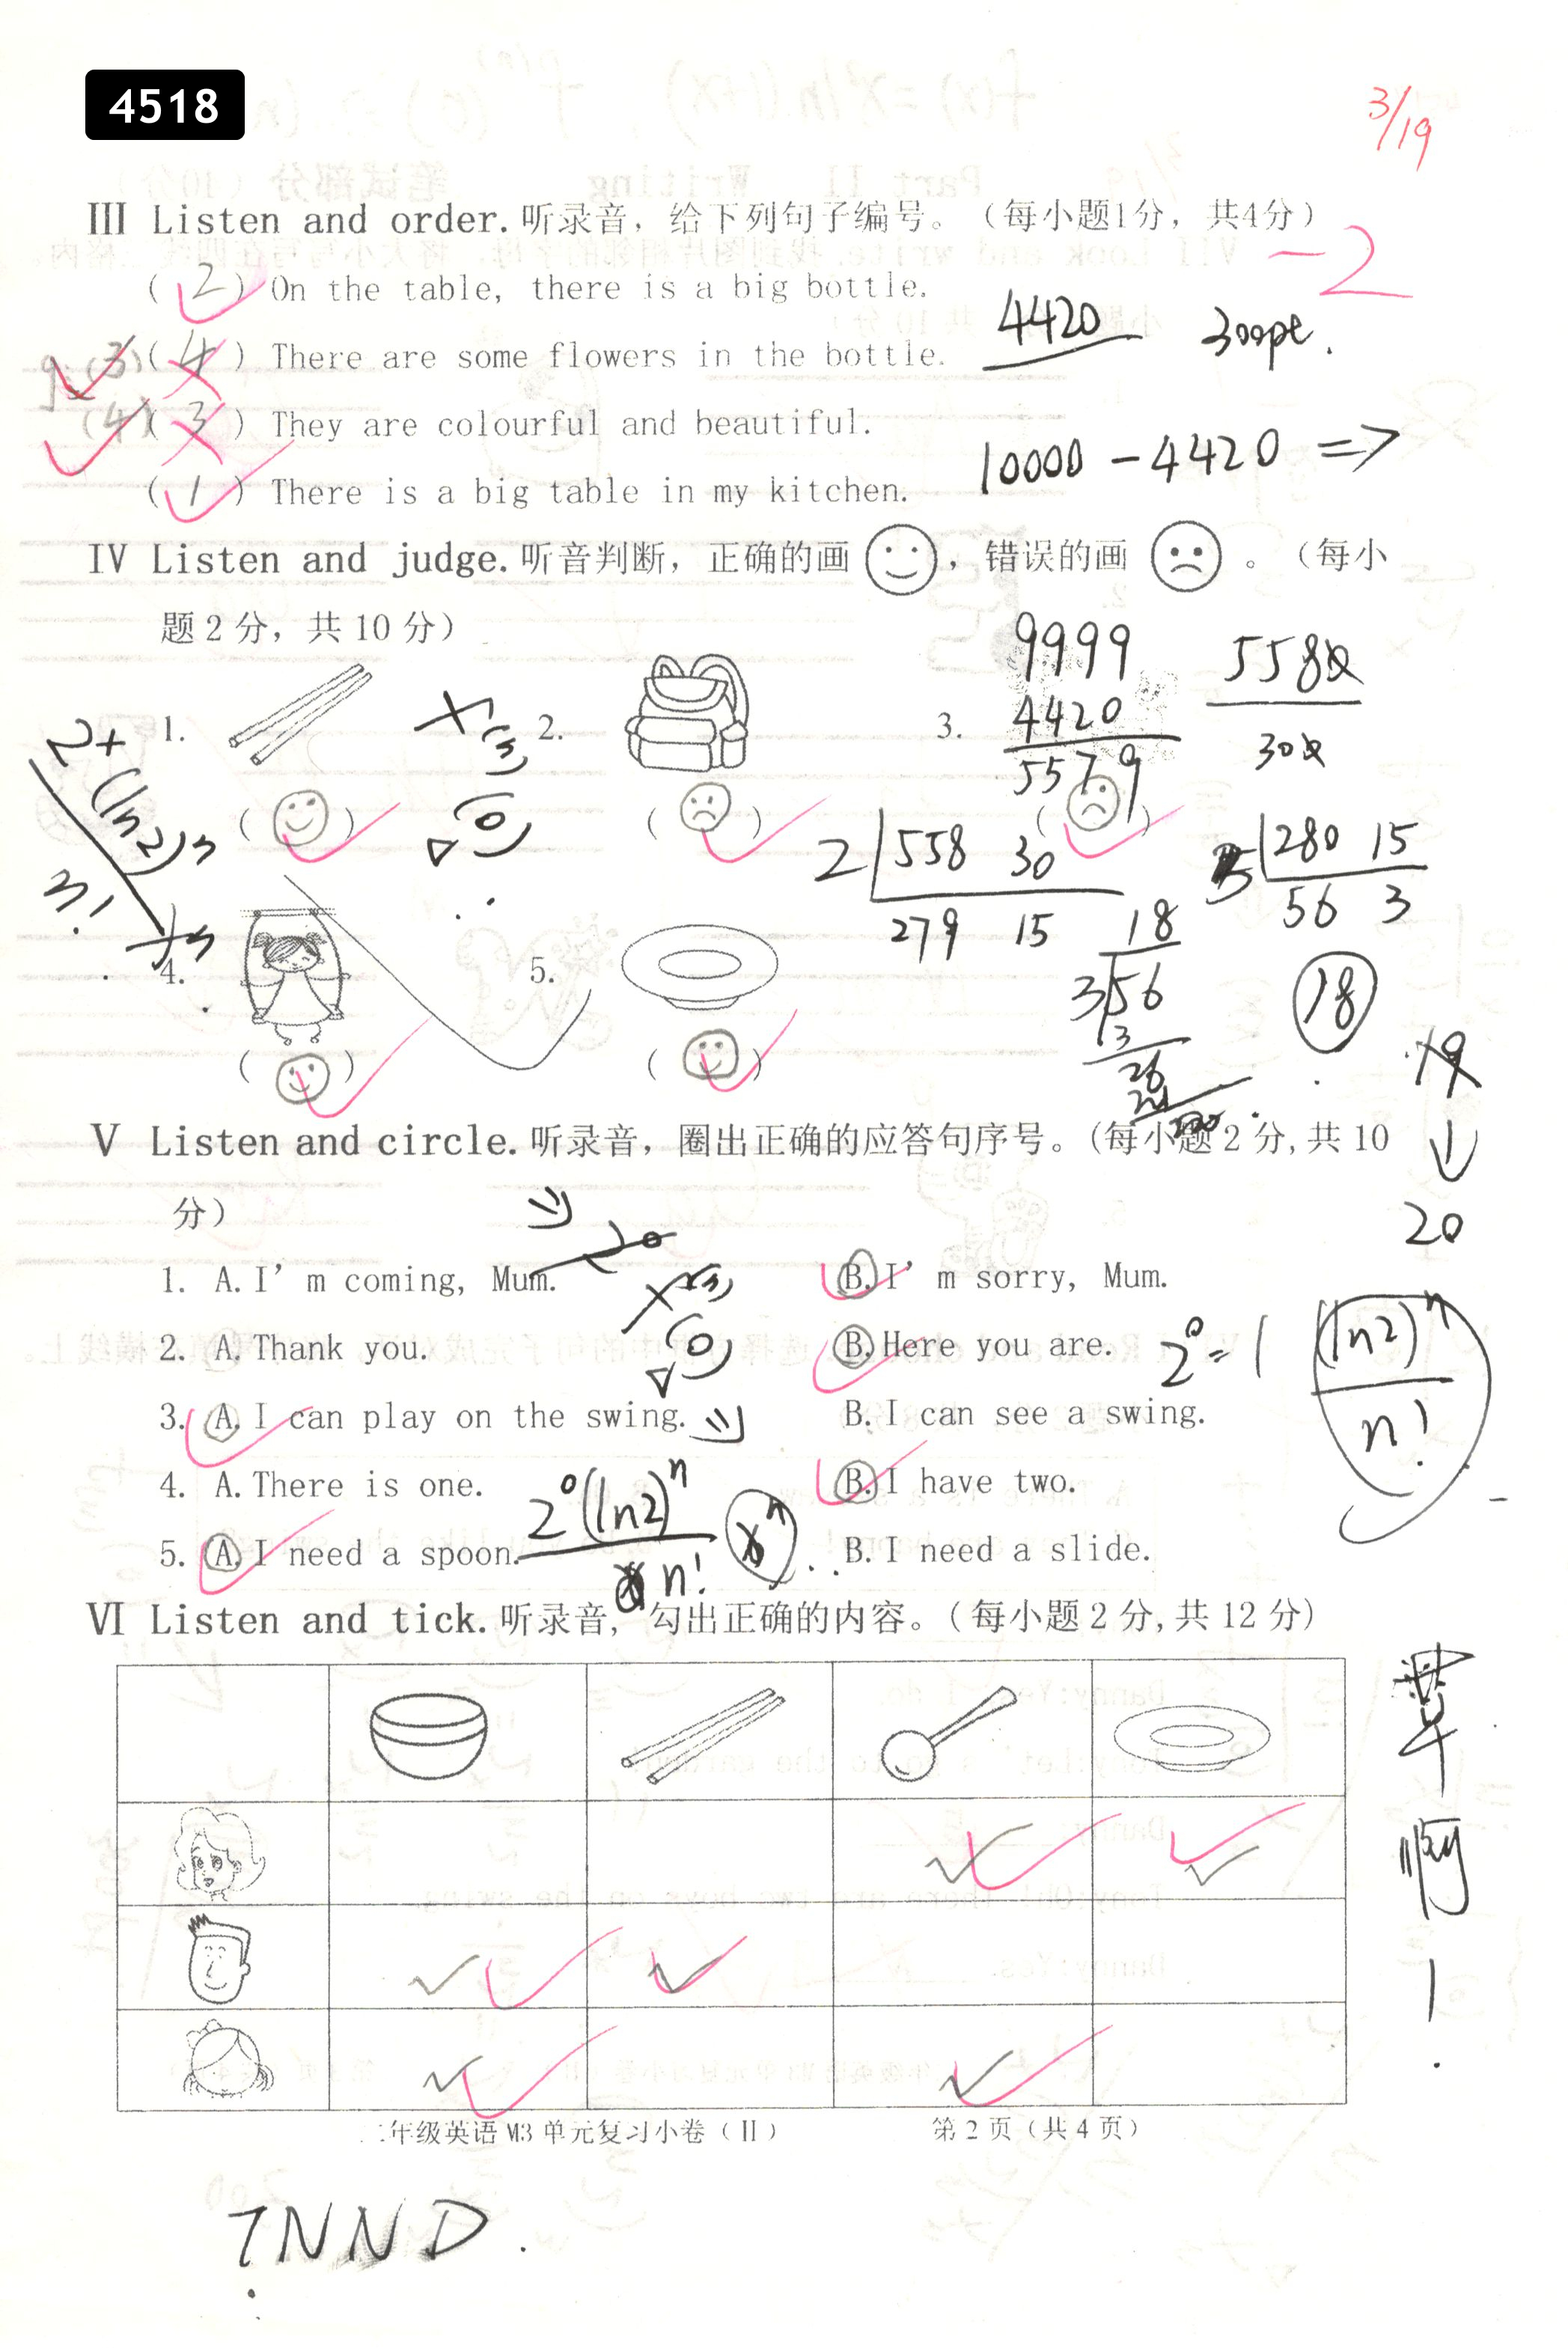 4518
3/19
III Listen and order. 听录音，给下列句子编号。（每小题1分，共4分）
-2
( 2 ) On the table, there is a big bottle.
4420 300pt.
(3)( 4 ) There are some flowers in the bottle.
(4)( 3 ) They are colourful and beautiful.
10000 - 4420 =>
( 1 ) There is a big table in my kitchen.
IV Listen and judge. 听音判断，正确的画 ，错误的画 。（每小
题2分，共10分）
9999
4420
5579
558
30
1. 2. 3.
2 558 30
279 15
5 280 15
56 3
18
3 56
3
26
18
19
↓
20
4. 5.
V Listen and circle. 听录音，圈出正确的应答句序号。(每小题2分,共10
分）
1. A. I'm coming, Mum. B. I'm sorry, Mum.
2. A. Thank you. B. Here you are.
2⁰=1
(ln2)ⁿ
n!
3. A. I can play on the swing. B. I can see a swing.
4. A. There is one. B. I have two.
2⁰(ln2)ⁿ
n! xⁿ
5. A. I need a spoon. B. I need a slide.
VI Listen and tick. 听录音，勾出正确的内容。(每小题2分,共12分)
啊
!
二年级英语M3单元复习小卷（II） 第2页（共4页）
TNND.